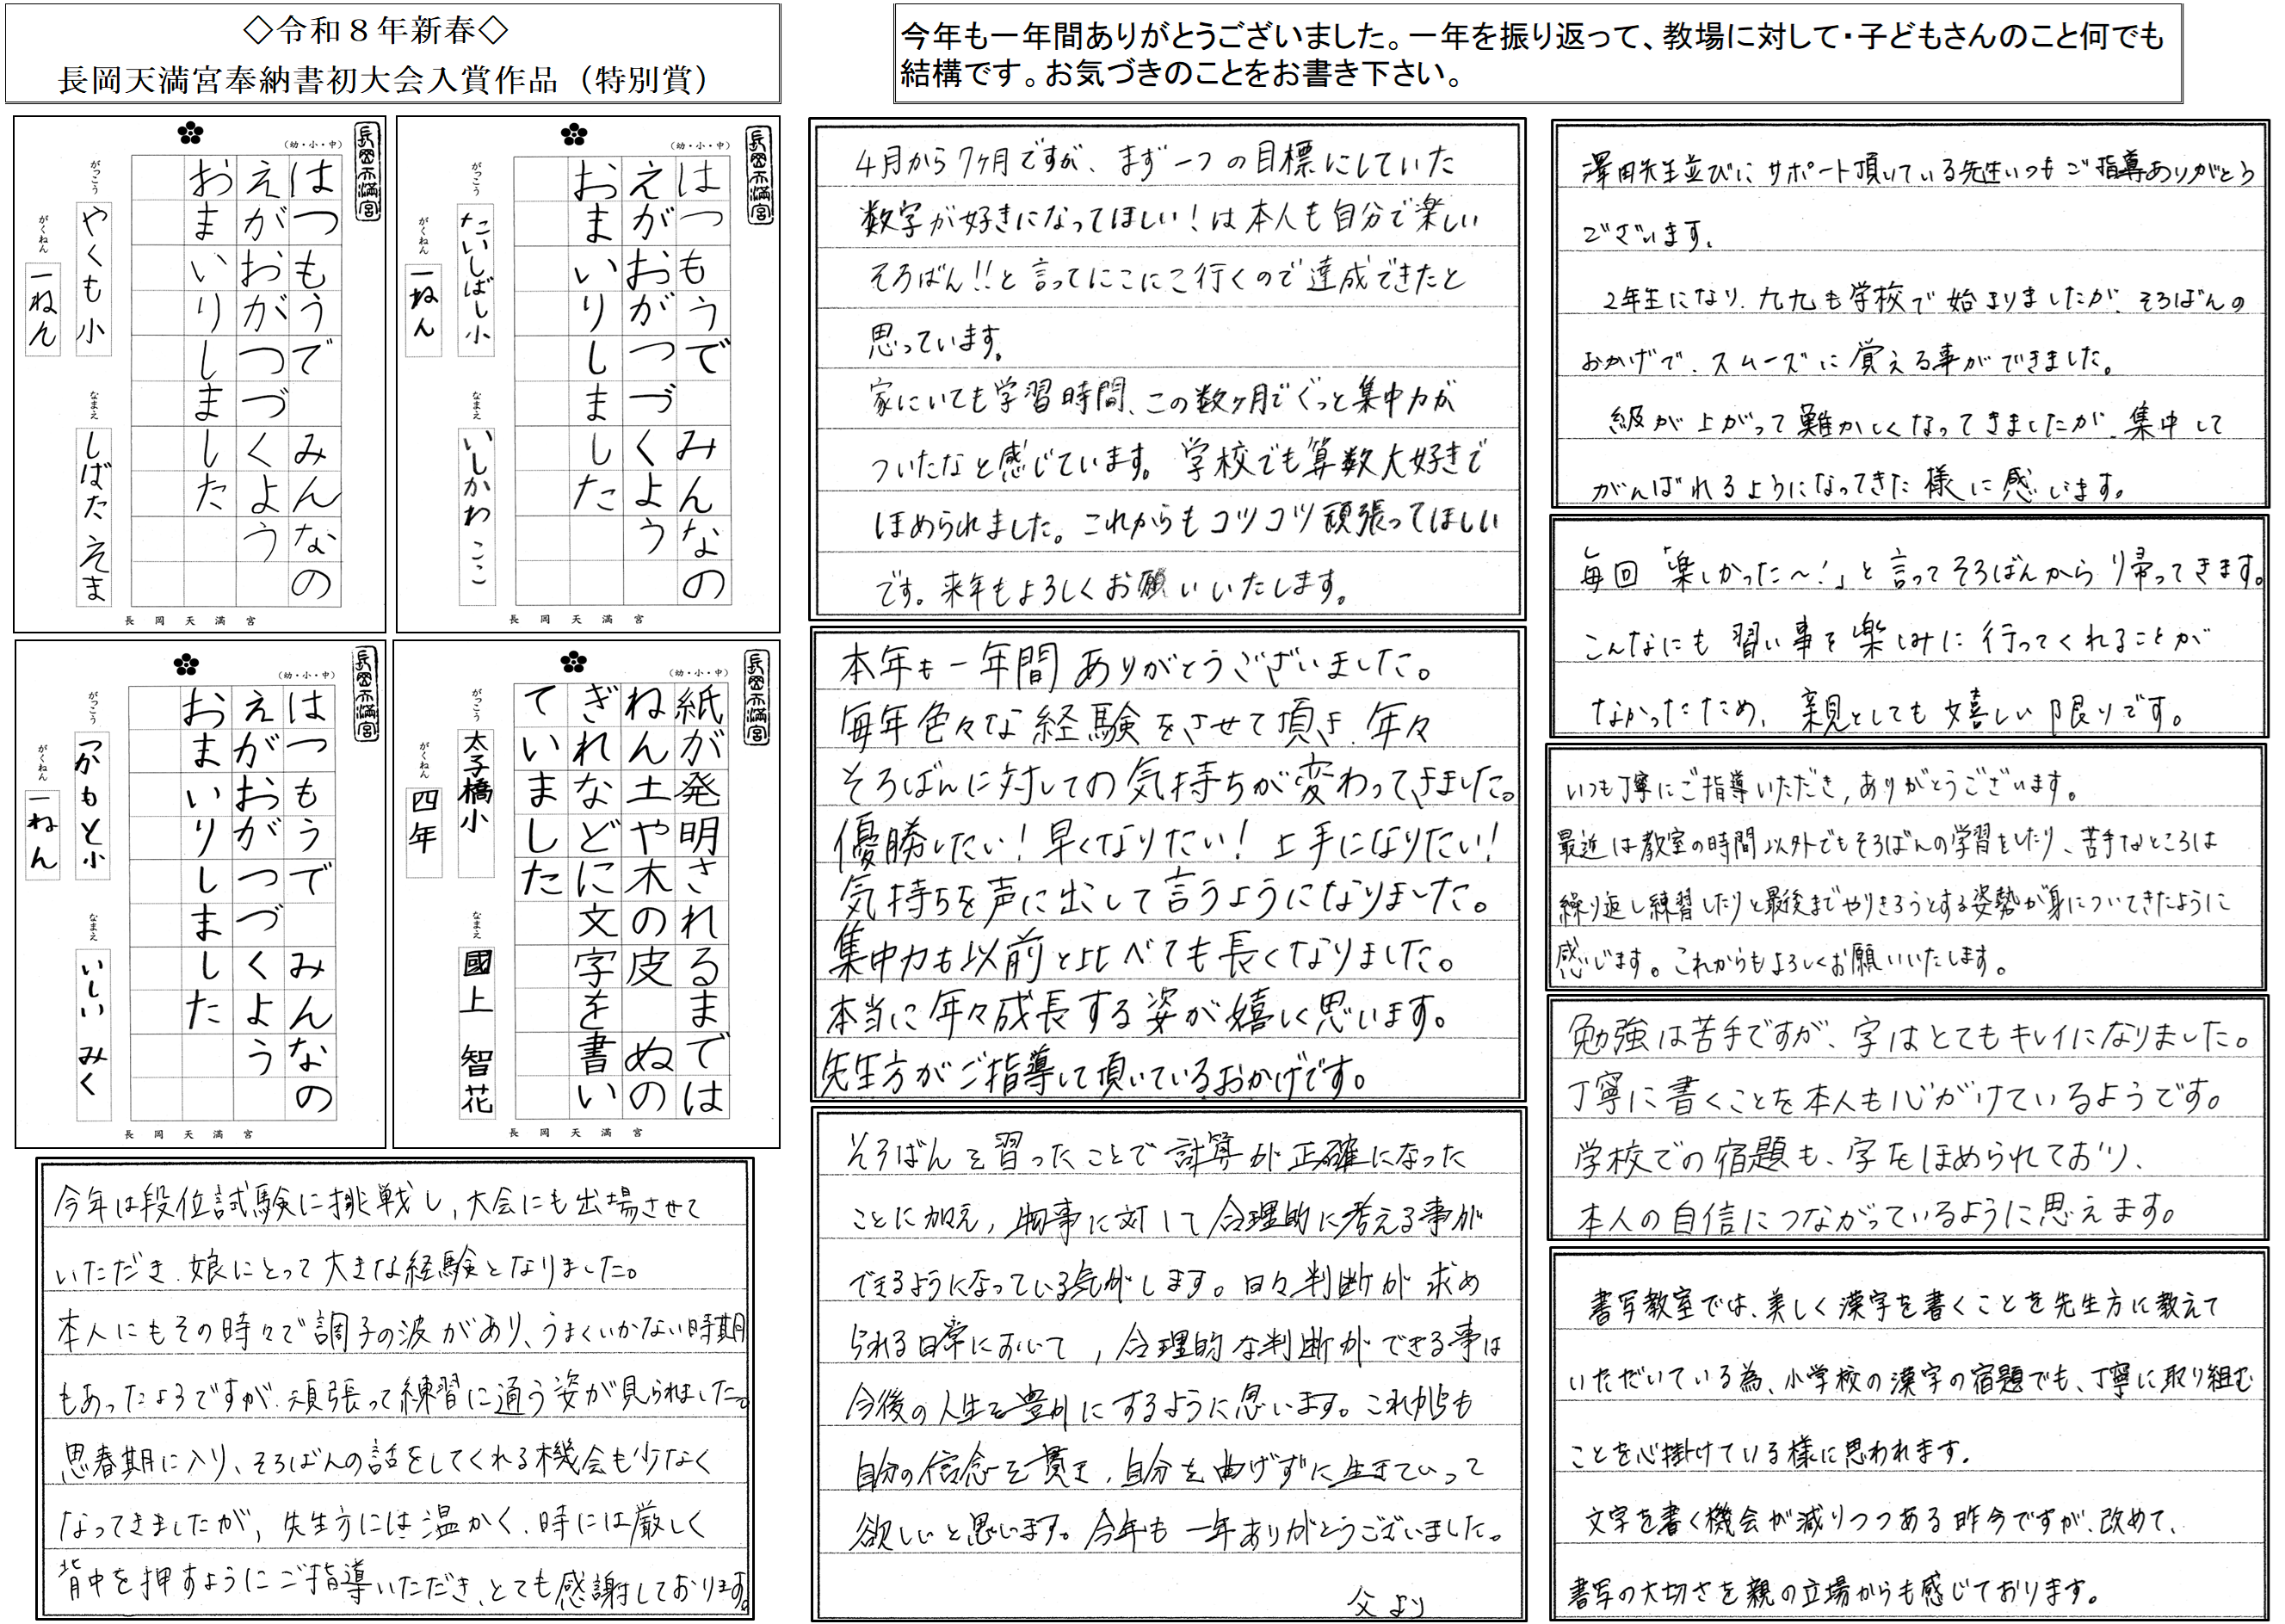 ◇令和８年新春◇
長岡天満宮奉納書初大会入賞作品（特別賞）
長岡天満宮
（幼・小・中）
はつもうで　みんなの
えがおがつづくよう
おまいりしました
がっこう
やくも小
なまえ
しばた えま
がくねん
一ねん
長岡天満宮
長岡天満宮
（幼・小・中）
はつもうで　みんなの
えがおがつづくよう
おまいりしました
がっこう
たいしばし小
なまえ
いしかわ ここ
がくねん
一ねん
長岡天満宮
長岡天満宮
（幼・小・中）
はつもうで　みんなの
えがおがつづくよう
おまいりしました
がっこう
つかもと小
なまえ
いしい みく
がくねん
一ねん
長岡天満宮
長岡天満宮
（幼・小・中）
紙が発明されるまでは
ねん土や木の皮　ぬの
ぎれなどに文字を書い
ていました
がっこう
太子橋小
なまえ
國上 智花
がくねん
四年
長岡天満宮
今年は段位試験に挑戦し，大会にも出場させて
いただき、娘にとって大きな経験となりました。
本人にもその時々で調子の波があり、うまくいかない時期
もあったようですが、頑張って練習に通う姿が見られました。
思春期に入り、そろばんの話をしてくれる機会も少なく
なってきましたが，先生方には温かく、時には厳しく
背中を押すようにご指導いただき、とても感謝しております。
今年も一年間ありがとうございました。一年を振り返って、教場に対して・子どもさんのこと何でも
結構です。お気づきのことをお書き下さい。
4月から7ヶ月ですが、まず一つの目標にしていた
数字が好きになってほしい！は本人も自分で楽しい
そろばん!!と言ってにこにこ行くので達成できたと
思っています。
家にいても学習時間、この数ヶ月でぐっと集中力が
ついたなと感じています。学校でも算数大好きで
ほめられました。これからもコツコツ頑張ってほしい
です。来年もよろしくお願いいたします。
本年も一年間ありがとうございました。
毎年色々な経験をさせて頂き、年々
そろばんに対しての気持ちが変わってきました。
優勝したい！早くなりたい！上手になりたい！
気持ちを声に出して言うようになりました。
集中力も以前と比べても長くなりました。
本当に年々成長する姿が嬉しく思います。
先生方がご指導して頂いているおかげです。
そろばんを習ったことで計算が正確になった
ことに加え，物事に対して合理的に考える事が
できるようになっている気がします。日々判断が求め
られる日常において，合理的な判断ができる事は
今後の人生を豊かにするように思います。これからも
自分の信念を貫き，自分を曲げずに生きていって
欲しいと思います。今年も一年ありがとうございました。
父より
澤田先生並びにサポート頂いている先生いつもご指導ありがとう
ございます。
2年生になり、九九も学校で始まりましたが、そろばんの
おかげで、スムーズに覚える事ができました。
級が上がって難かしくなってきましたが、集中して
がんばれるようになってきた様に感じます。
毎回「楽しかった～！」と言ってそろばんから帰ってきます。
こんなにも習い事を楽しみに行ってくれることが
なかったため、親としても嬉しい限りです。
いつも丁寧にご指導いただき，ありがとうございます。
最近は教室の時間以外でもそろばんの学習をしたり、苦手なところは
繰り返し練習したりと最後までやりきろうとする姿勢が身についてきたように
感じます。これからもよろしくお願いいたします。
勉強は苦手ですが、字はとてもキレイになりました。
丁寧に書くことを本人も心がけているようです。
学校での宿題も、字をほめられており、
本人の自信につながっているように思えます。
書写教室では、美しく漢字を書くことを先生方に教えて
いただいている為、小学校の漢字の宿題でも、丁寧に取り組む
ことを心掛けている様に思われます。
文字を書く機会が減りつつある昨今ですが、改めて、
書写の大切さを親の立場からも感じております。